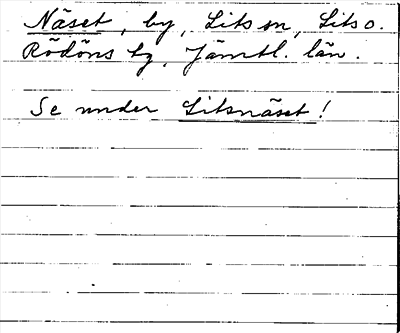 Näset, by, Lits sn, Lits o.
Rödöns tg, Jämtl. län.
Se under Litsnäset!